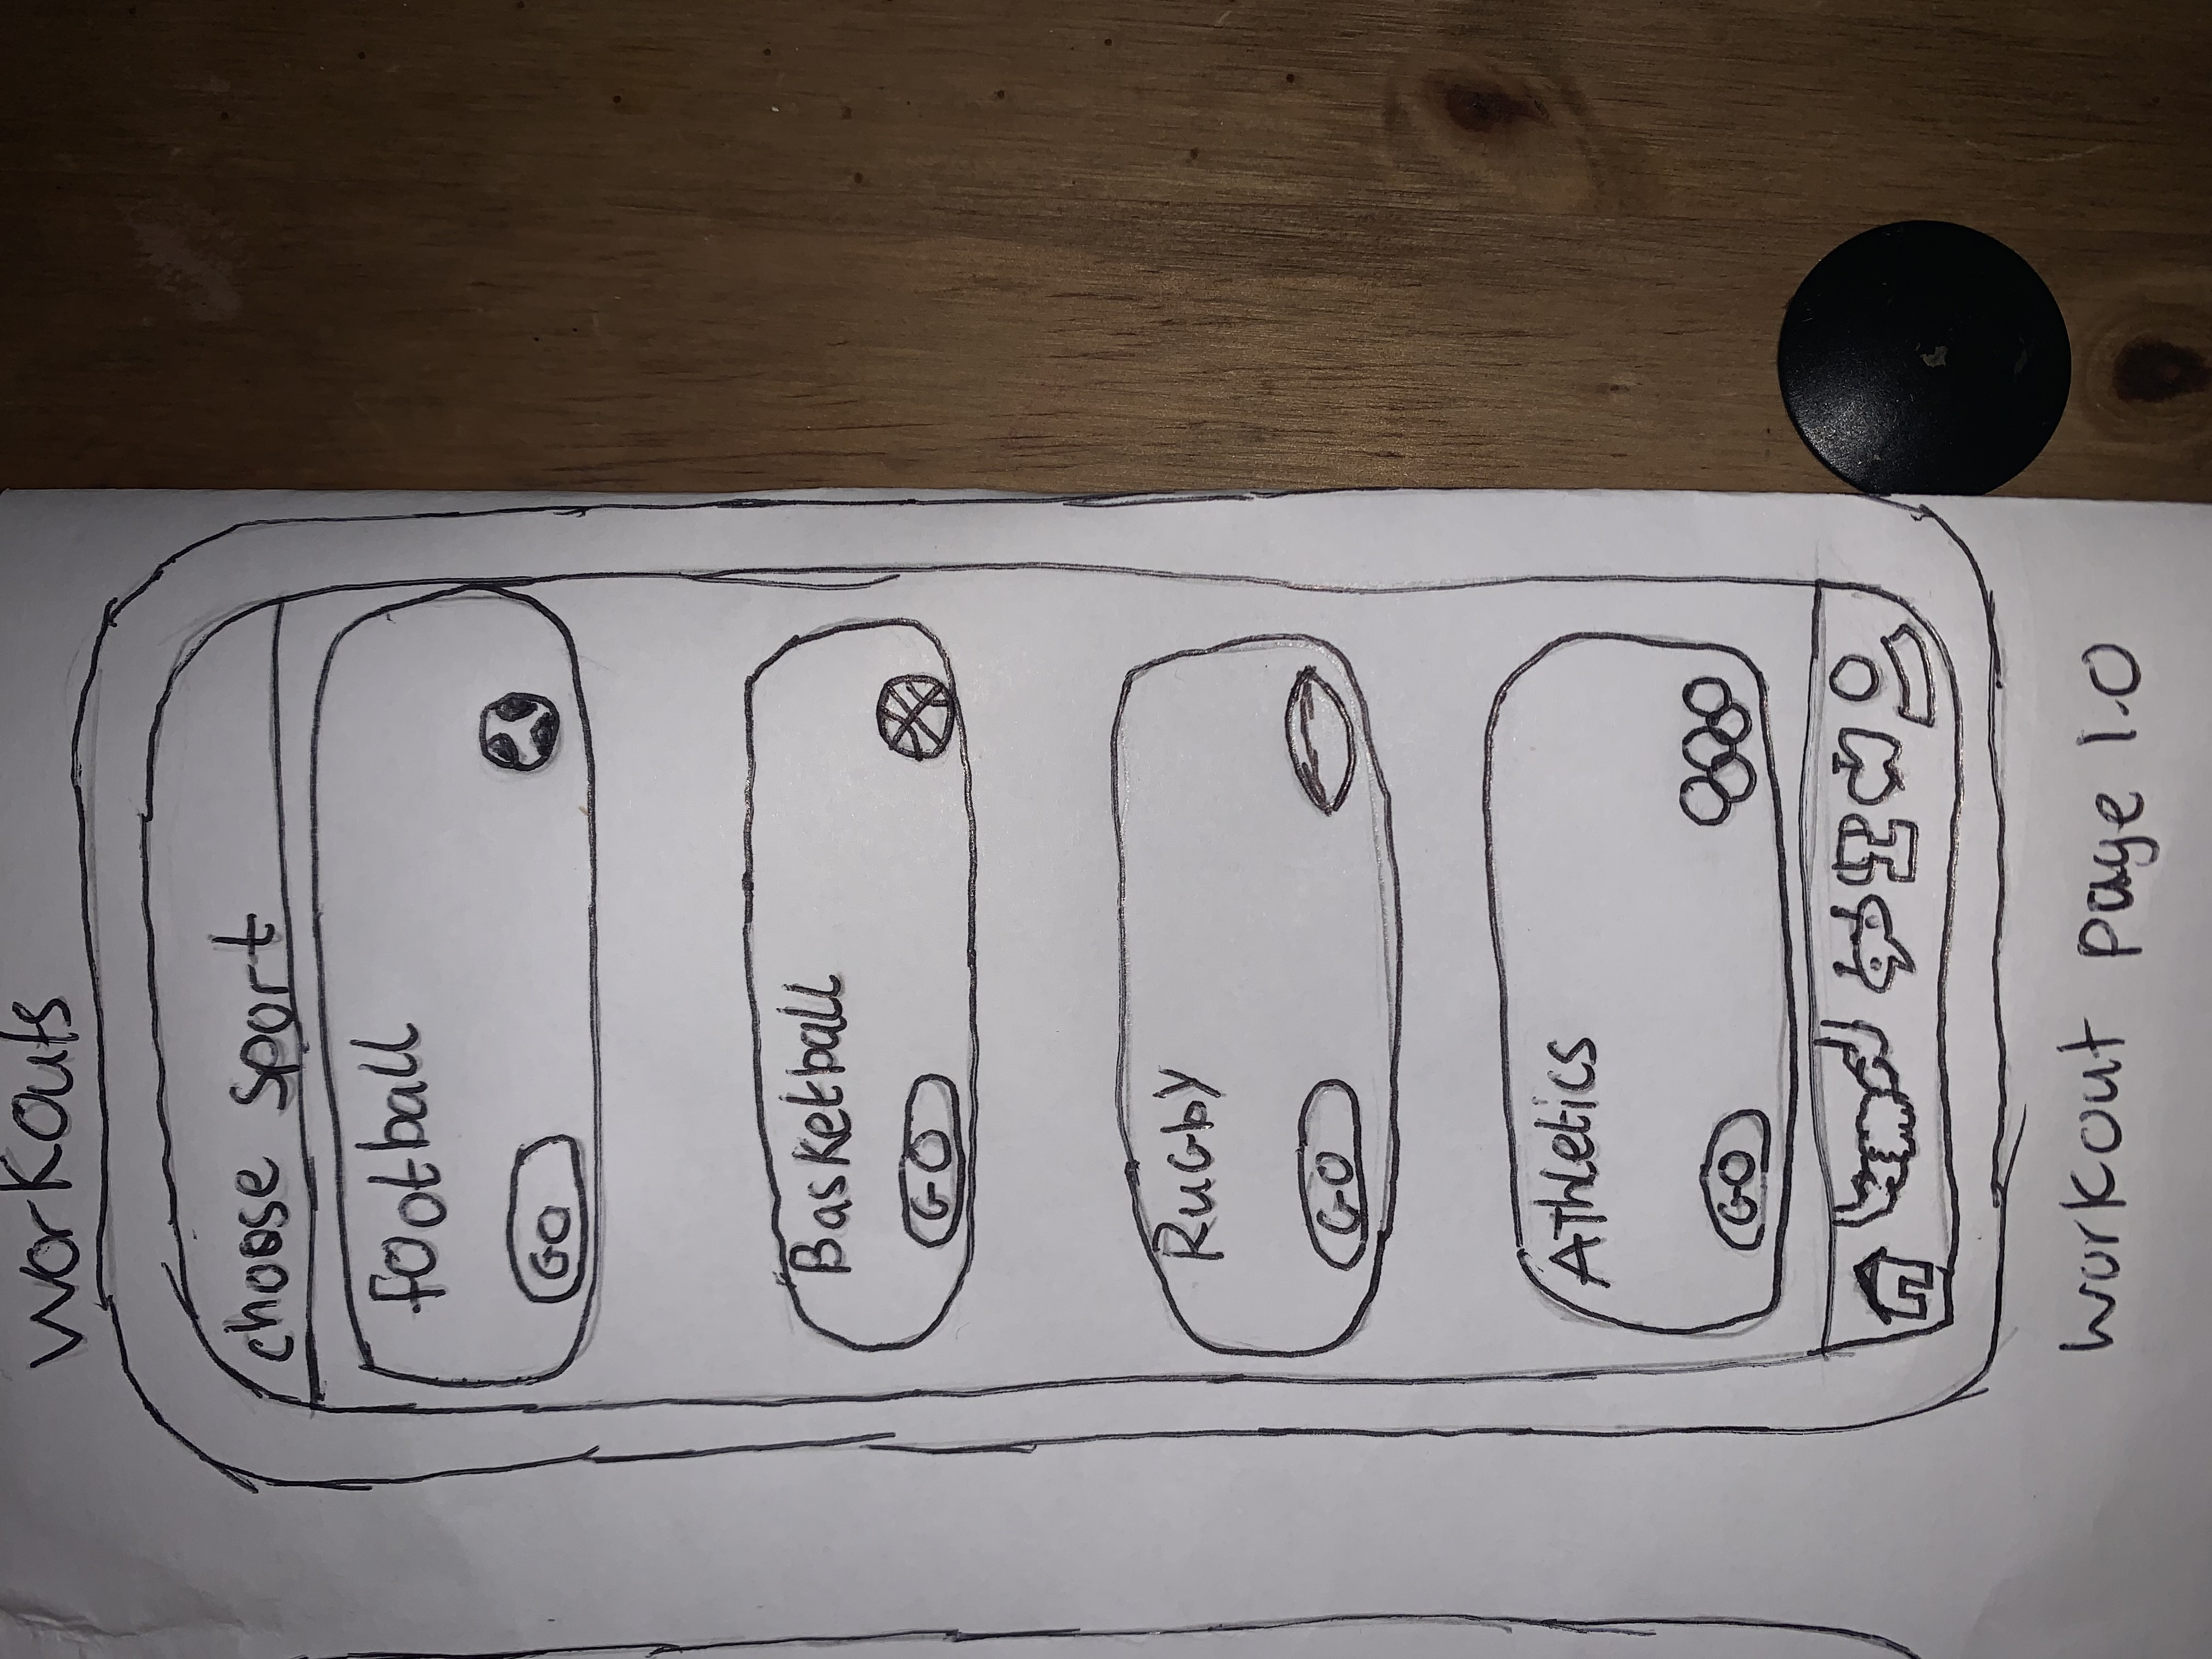 Workouts
choose sport
football
GO
Basketball
GO
Rugby
GO
Athletics
GO
workout page 1.0